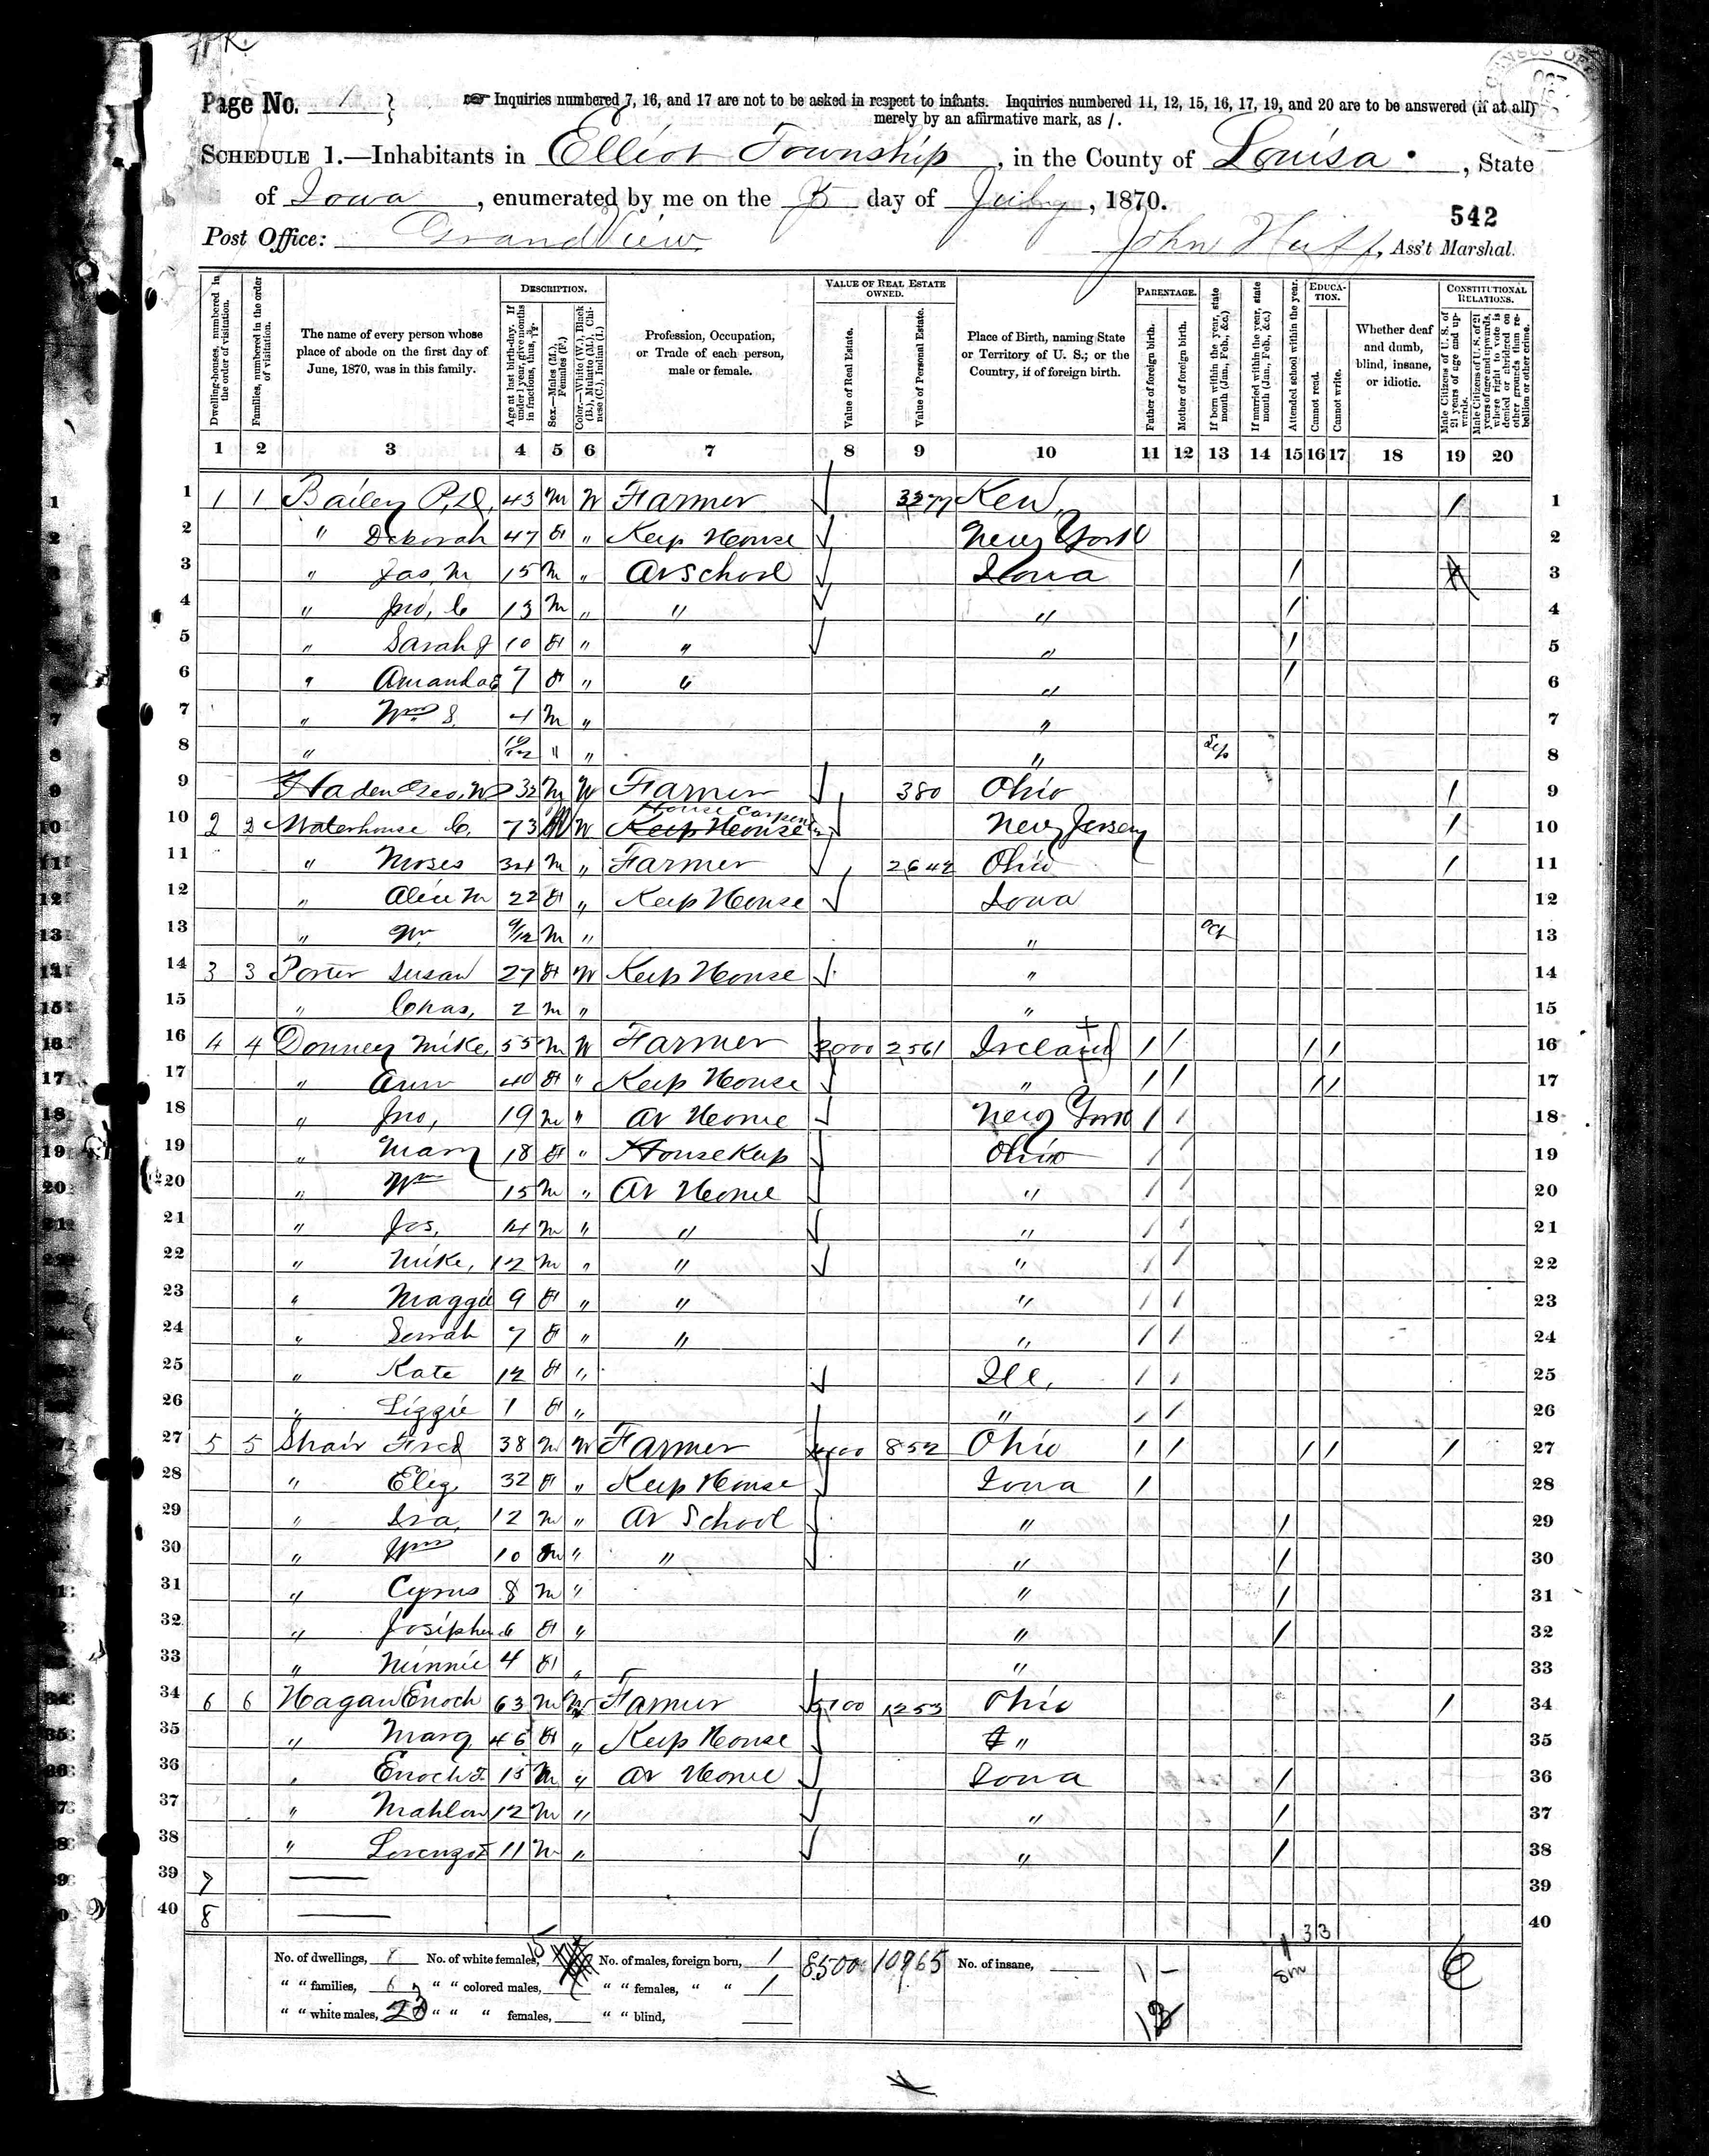 Page No. 1
☞ Inquiries numbered 7, 16, and 17 are not to be asked in respect to infants. Inquiries numbered 11, 12, 15, 16, 17, 19, and 20 are to be answered (if at all)
merely by an affirmative mark, as /.
SCHEDULE 1.—Inhabitants in Elliot Township, in the County of Louisa, State
of Iowa, enumerated by me on the 5 day of July, 1870.
542
Post Office: Grand View John Huff, Ass't Marshal.
DESCRIPTION. VALUE OF REAL ESTATE OWNED. PARENTAGE. EDUCATION. CONSTITUTIONAL RELATIONS.
Dwelling-houses, numbered in the order of visitation.
Families, numbered in the order of visitation.
The name of every person whose place of abode on the first day of June, 1870, was in this family.
Age at last birth-day. If under 1 year, give months in fractions, thus, 3/12.
Sex.—Males (M.), Females (F.)
Color.—White (W.), Black (B.), Mulatto (M.), Chinese (C.), Indian (I.)
Profession, Occupation, or Trade of each person, male or female.
Value of Real Estate.
Value of Personal Estate.
Place of Birth, naming State or Territory of U. S.; or the Country, if of foreign birth.
Father of foreign birth.
Mother of foreign birth.
If born within the year, state month (Jan., Feb., &c.)
If married within the year, state month (Jan., Feb., &c.)
Attended school within the year.
Cannot read.
Cannot write.
Whether deaf and dumb, blind, insane, or idiotic.
Male Citizens of U. S. of 21 years of age and upwards.
Male Citizens of U. S. of 21 years of age and upwards, where right to vote is denied or abridged on other grounds than rebellion or other crime.
1 2 3 4 5 6 7 8 9 10 11 12 13 14 15 16 17 18 19 20
1 1 1 Bailey P. D. 43 M W Farmer 3277 Ken. / 1
2 " Deborah 47 F " Keep House New York 2
3 " Jas. M 15 M " At School Iowa / 3
4 " Jno. C 13 M " " " / 4
5 " Sarah J 10 F " " " / 5
6 " Amanda E 7 F " " " / 6
7 " Wm S. 4 M " " 7
8 " 10/12 " " " Sep 8
9 Haden Geo. W 32 M W Farmer 380 Ohio / 9
10 2 2 Waterhouse C. 73 M W House Carpenter New Jersey / 10
11 " Moses 34 M " Farmer 2,642 Ohio / 11
12 " Alice M 22 F " Keep House Iowa 12
13 " Wm 9/12 M " " Oct 13
14 3 3 Porter Susan 27 F W Keep House " 14
15 " Chas. 2 M " " 15
16 4 4 Donney Mike 55 M W Farmer 2000 2,561 Ireland / / / / 16
17 " Ann 40 F " Keep House " / / / / 17
18 " Jno. 19 M " At Home New York / / 18
19 " Mary 18 F " House Keep Ohio / / 19
20 " Wm 15 M " At Home " / / 20
21 " Jos. 14 M " " " / / 21
22 " Mike, 12 M " " " / / 22
23 " Maggie 9 F " " " / / 23
24 " Serrah 7 F " " " / / 24
25 " Kate 12 F " Ill. / / 25
26 " Lizzie 1 F " " / / 26
27 5 5 Shair Fred 38 M W Farmer 852 Ohio / / / / / 27
28 " Eliz. 32 F " Keep House Iowa / 28
29 " Ira, 12 M " At School " / 29
30 " Wm 10 M " " " / 30
31 " Cyrus 8 M " " / 31
32 " Josephine 6 F " " / 32
33 " Minnie 4 F " " 33
34 6 6 Hagan Enoch 63 M W Farmer 1,253 Ohio / 34
35 " Marg. 46 F " Keep House " 35
36 " Enoch J. 15 M " At Home Iowa / 36
37 " Mahlon 12 M " " / 37
38 " Lorenzo 11 M " " / 38
39 7 39
40 8 40
No. of dwellings, 8 No. of white females, 15 No. of males, foreign born, 1 8500 10965 No. of insane,
" " families, 6 " " colored males, " " females, " " 1
" " white males, 23 " " " females, " " blind,